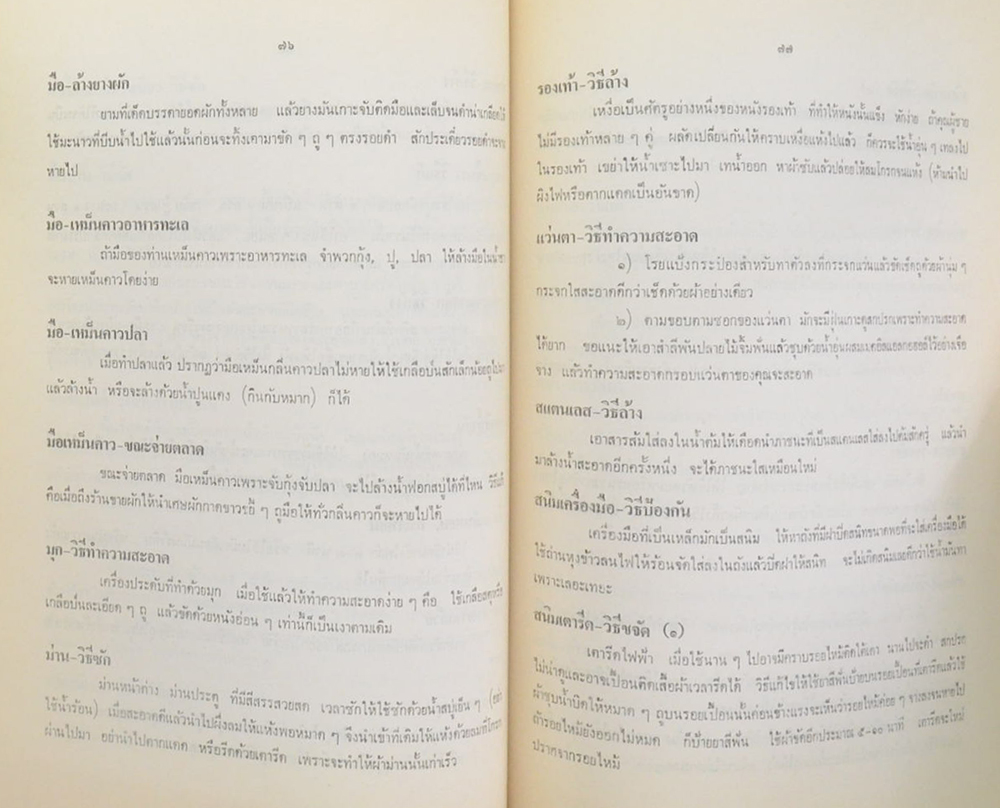 ๗๖
มือ-ล้างยางผัก
ยามที่เด็ดบรรดายอดผักทั้งหลาย แล้วยางมันเกาะจับติดมือและเล็บจนดำน่าเกลียด
ใช้มะนาวที่บีบน้ำไปใช้แล้วนั้นก่อนจะทิ้งเอามาขัด ๆ ถู ๆ ตรงรอยดำ สักประเดี๋ยวรอยดำจะ
หายไป
มือ-เหม็นคาวอาหารทะเล
ถ้ามือของท่านเหม็นคาวเพราะอาหารทะเล จำพวกกุ้ง, ปู, ปลา ให้ล้างมือใน
จะหายเหม็นคาวโดยง่าย
มือ-เหม็นคาวปลา
เมื่อทำปลาแล้ว ปรากฏว่ามือเหม็นกลิ่นคาวปลาไม่หายให้ใช้เกลือป่นสักเล็กน้อยถู
แล้วล้างน้ำ หรือจะล้างด้วยน้ำปูนแดง (กินกับหมาก) ก็ได้
มือเหม็นคาว-ขณะจ่ายตลาด
ขณะจ่ายตลาด มือเหม็นคาวเพราะจับกุ้งจับปลา จะไปล้างน้ำฟอกสบู่ได้ที่ไหน
คือเมื่อถึงร้านขายผักให้นำเศษผักกาดขาวขยี้ ๆ ถูมือให้ทั่วกลิ่นคาวก็จะหายไปได้
มุก-วิธีทำความสะอาด
เครื่องประดับที่ทำด้วยมุก เมื่อใช้แล้วให้ทำความสะอาดง่าย ๆ คือ ใช้เกลือ
เกลือป่นละเอียด ๆ ถู แล้วขัดด้วยหนังอ่อน ๆ เท่านี้ก็เป็นเงาตามเดิม
ม่าน-วิธีซัก
ม่านหน้าต่าง ม่านประตู ที่มีสีสรรสวยสด เวลาซักให้ใช้ซักด้วยน้ำสบู่เย็น ๆ
ใช้น้ำร้อน) เมื่อสะอาดดีแล้วนำไปผึ่งลมให้แห้งพอหมาด ๆ จึงนำเข้าที่เดิมให้แห้งด้วยลมที่โกรก
ผ่านไปมา อย่านำไปตากแดด หรือรีดด้วยเตารีด เพราะจะทำให้ผ้าม่านนั้นเก่าเร็ว
๗๗
รองเท้า-วิธีล้าง
เหงื่อเป็นศัตรูอย่างหนึ่งของหนังรองเท้า ที่ทำให้หนังนั้นแข็ง หักง่าย ถ้าคุณผู้ชาย
ไม่มีรองเท้าหลาย ๆ คู่ ผลัดเปลี่ยนกันให้คราบเหงื่อแห้งไปแล้ว ก็ควรจะใช้น้ำอุ่น ๆ เทลงไป
ในรองเท้า เขย่าให้น้ำเซาะไปมา เทน้ำออก หาผ้าซับแล้วปล่อยให้ลมโกรกจนแห้ง (ห้ามนำไป
ผิงไฟหรือตากแดดเป็นอันขาด)
แว่นตา-วิธีทำความสะอาด
๑) โรยแป้งกระป๋องสำหรับทาตัวลงที่กระจกแว่นแล้วขัดเช็ดถูด้วยผ้านุ่ม ๆ
กระจกใสสะอาดดีกว่าเช็ดด้วยผ้าอย่างเดียว
๒) ตามขอบตามซอกของแว่นตา มักจะมีฝุ่นเกาะดูสกปรกเพราะทำความสะอาด
ได้ยาก ขอแนะให้เอาสำลีพันปลายไม้จิ้มฟันแล้วชุบด้วยน้ำอุ่นผสมเมธิลแอลกอฮอล์ไว้อย่างเจือ
จาง แล้วทำความสะอาดกรอบแว่นตาของคุณจะสะอาด
สแตนเลส-วิธีล้าง
เอาสารส้มใส่ลงในน้ำต้มให้เดือดนำภาชนะที่เป็นสแตนเลสใส่ลงไปต้มสักครู่ แล้วนำ
มาล้างน้ำสะอาดอีกครั้งหนึ่ง จะได้ภาชนะใสเหมือนใหม่
สนิมเครื่องมือ-วิธีป้องกัน
เครื่องมือที่เป็นเหล็กมักเป็นสนิม ให้หาถังที่มีฝาปิดสนิทขนาดพอที่จะใส่เครื่องมือได้
ใช้ถ่านหุงข้าวลนไฟให้ร้อนจัดใส่ลงในถังแล้วปิดฝาให้สนิท จะไม่เกิดสนิมเลยดีกว่าใช้น้ำมันทา
เพราะเลอะเทอะ
สนิมเตารีด-วิธีขจัด (๑)
เตารีดไฟฟ้า เมื่อใช้นาน ๆ ไปอาจมีคราบรอยไหม้ติดใต้เตา นานไปจะดำ สกปรก
ไม่น่าดูและอาจเปื้อนติดเสื้อผ้าเวลารีดได้ วิธีแก้ไขให้ใช้ยาสีฟันป้ายบนรอยเปื้อนที่เตารีดแล้วใช้
ผ้าชุบน้ำบิดให้หมาด ๆ ถูบนรอยเปื้อนนั้นค่อนข้างแรงจะเห็นว่ารอยไหม้ค่อย ๆ จางลงจนหายไป
ถ้ารอยไหม้ยังออกไม่หมด ก็ป้ายยาสีฟัน ใช้ผ้าขัดอีกประมาณ ๕-๑๐ นาที เตารีดจะใหม่
ปราศจากรอยไหม้